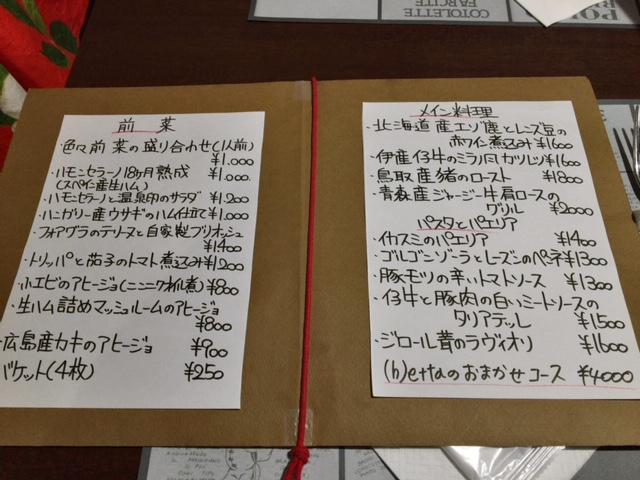 COTOLETTE
FARCITE
前菜
色々前菜の盛り合わせ(1人前)
¥1.000
・ハモンセラーノ18ヶ月熟成
(スペイン産生ハム) ¥1.000.
・ハモンセラーノと温泉卵のサラダ ¥1.200
・ハンガリー産ウサギのハム仕立て ¥1.000
・フォアグラのテリーヌと自家製ブリオッシュ
¥1400
・トリッパと茄子のトマト煮込み ¥1200
・小エビのアヒージョ(ニンニク油煮) ¥800
・生ハム詰めマッシュルームのアヒージョ
¥800
・広島産カキのアヒージョ ¥900
バケット(4枚) ¥250
メイン料理
・北海道産エゾ鹿とレンズ豆の
赤ワイン煮込み ¥1600
・伊産仔牛のミラノ風カツレツ ¥1600
・鳥取産猪のロースト ¥1800
・青森産ジャージー牛肩ロースの
グリル ¥2000
パスタとパエリア
・イカスミのパエリア ¥1400
・ゴルゴンゾーラとレーズンのペンネ ¥1300
・豚モツの辛いトマトソース ¥1300
・仔牛と豚肉の白いミートソースの
タリアテッレ ¥1500
・ジロール茸のラヴィオリ ¥1600
(h)ettaのおまかせコース ¥4000